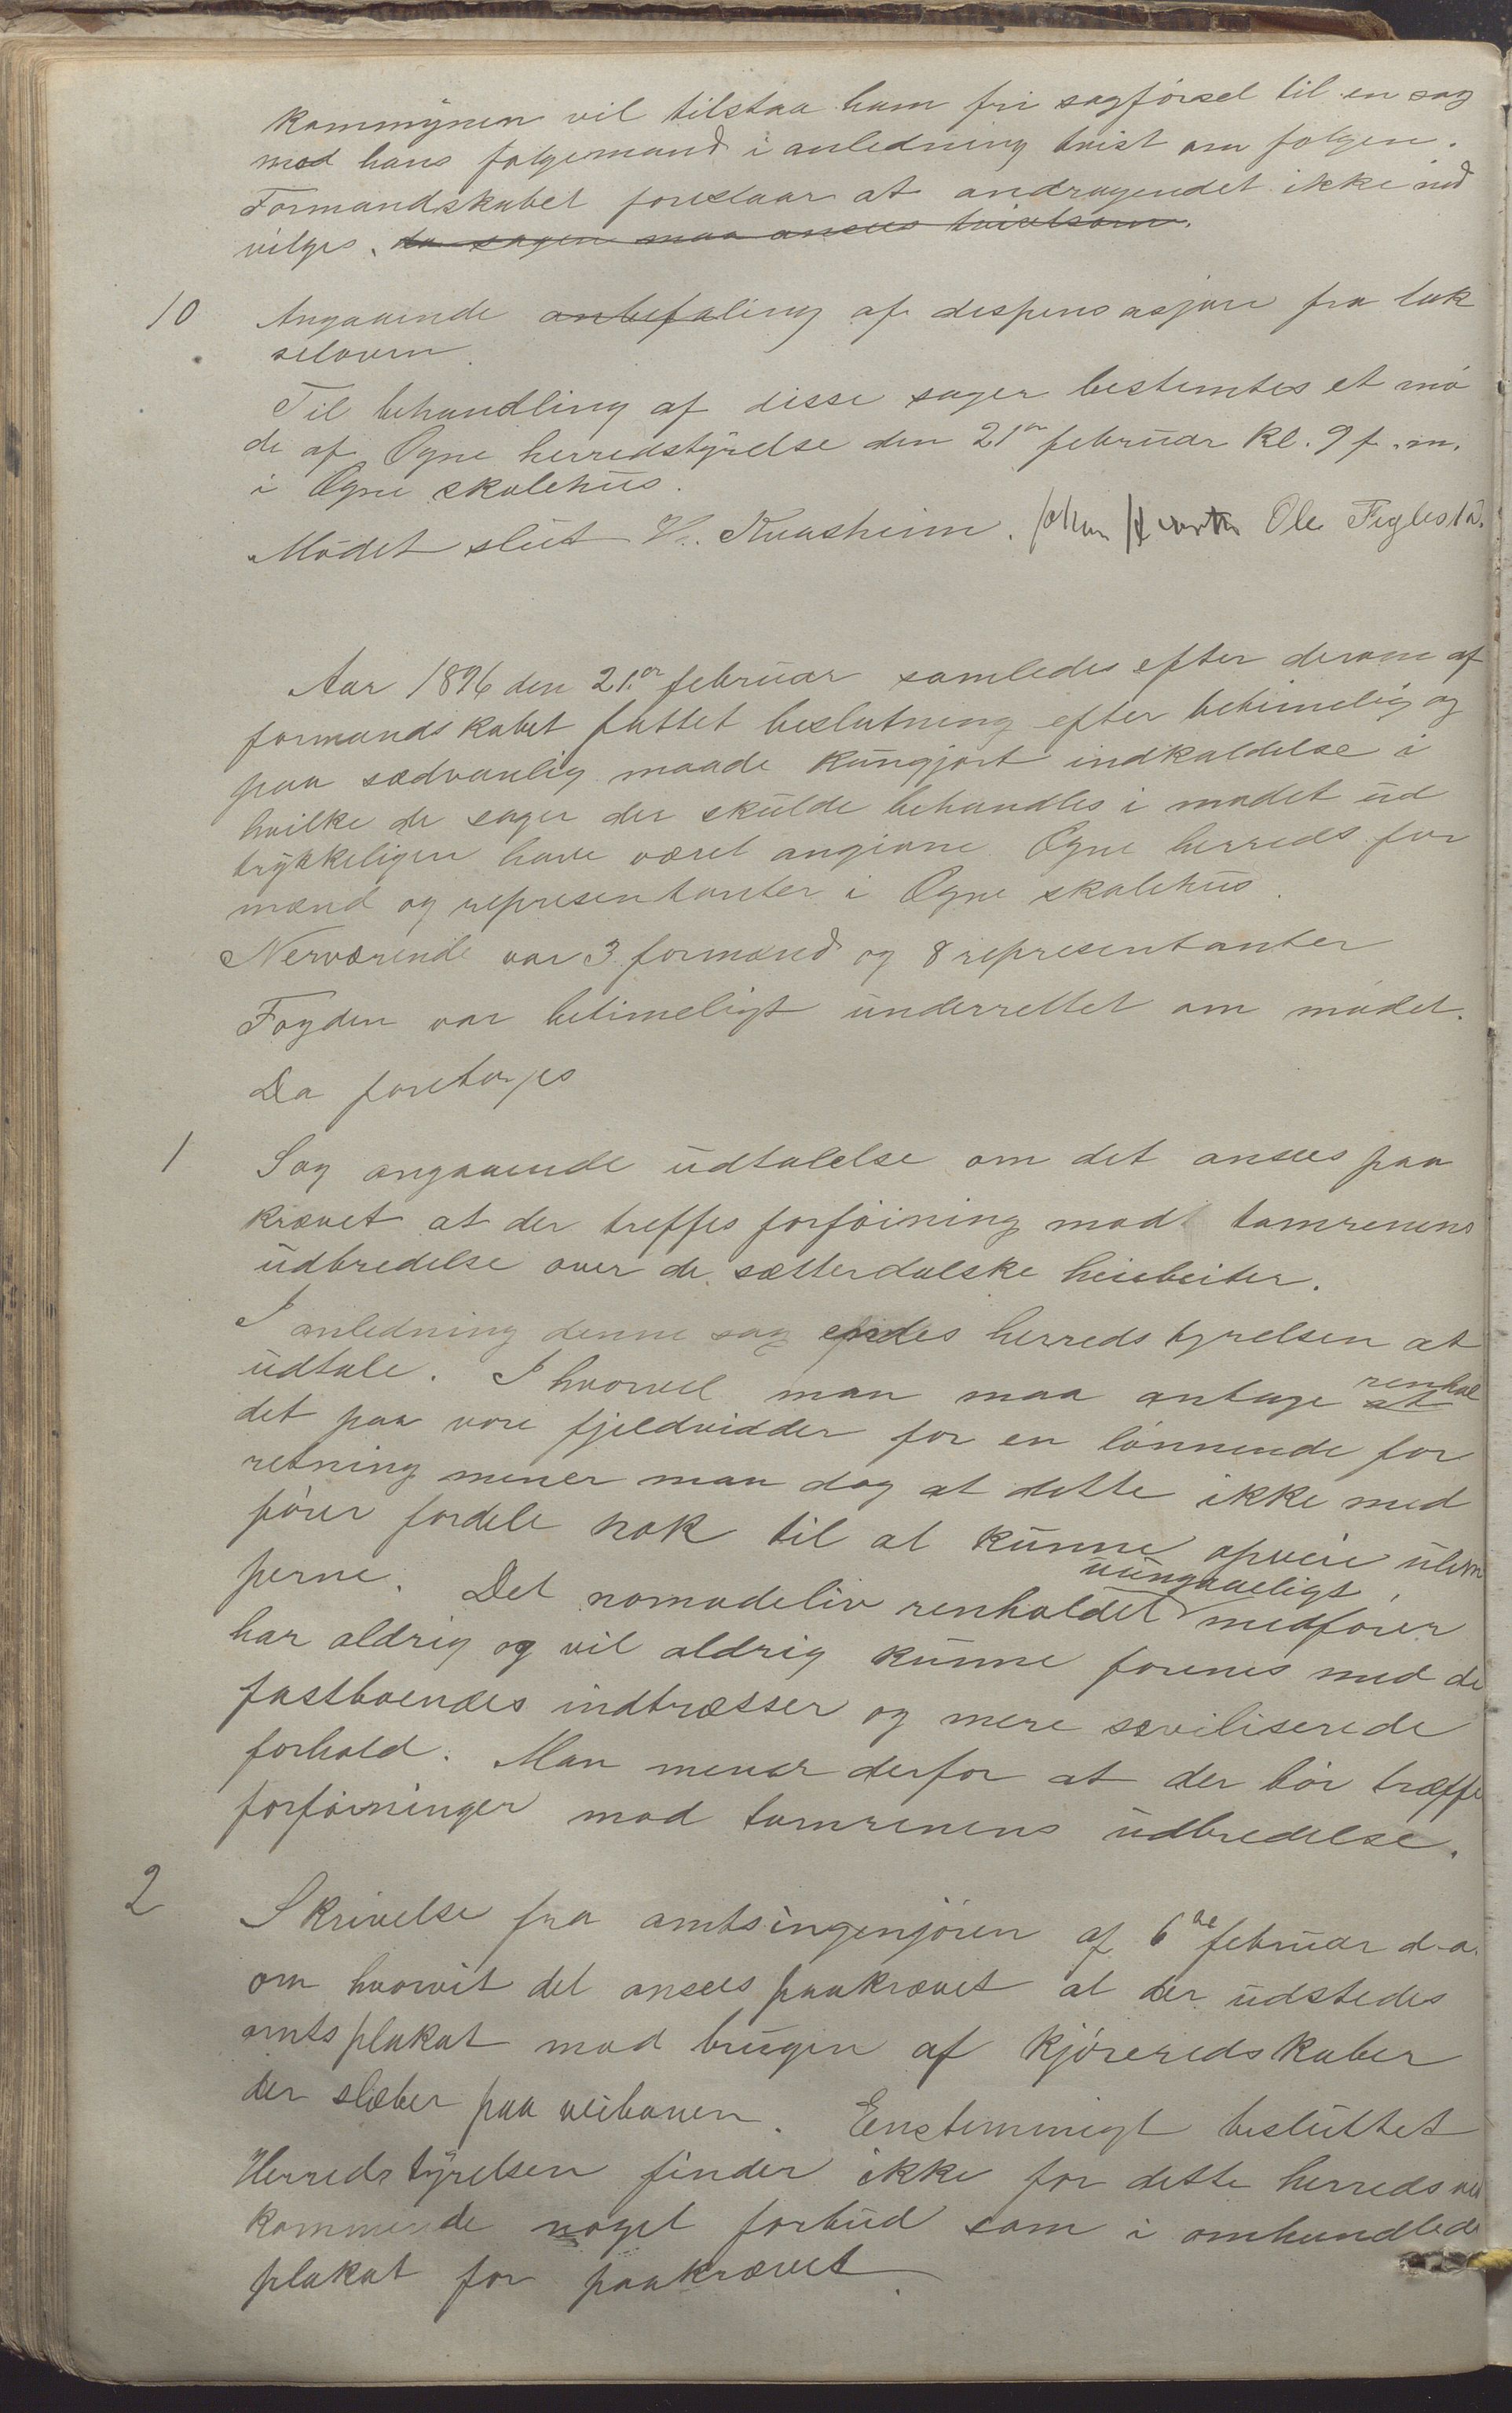 kommynen vil tilstaa ham fri sagförsel til en sag
mod hans folgemand i anledning tvist om folgen.
Formandskabet foreslaar at andragendet ikke ind
vilges. da sagen maa ansees tvivelsom.
10 Angaaende anbefaling af dispensasjon fra luk
seloven
Til behandling af disse sager bestemtes et mö
de af Ogne herredstyrelse den 21de februar kl. 9 f.m.
i Ogne skolehus.
Mödet slut Kvasheim. Ole
Aar 1896 den 21de februar samledes efter derom af
formandskabet fattet beslutning efter betimelig og
paa sædvanlig maade kungjort indkaldelse i
hvilke de sager der skulde behandles i mødet ud
trykkeligen have været angivne Ogne herreds for
mænd og representanter i Ogne skolehus.
Nerværende var 3 formænd og 8 representanter
Fogden var betimeligt underrettet om mødet.
Da foretoges
1 Sag angaaende udtalelse om det ansees paa
krævet at der treffes forföining mod tamrenens
udbredelse over de sætterdalske heiebeiter.
I anledning denne sag herredstyrelsen at
udtale. I hvorvel man maa antage at renhol
det paa vore fjeldvidder for en lönnende for
retning mener man dog at dette ikke med
förer fordele nok til at kunne opveie ulem
perne. Det nomadeliv renholdet uungaaeligt medförer
har aldrig og vil aldrig kunne forenes med de
fastboendes indtræsser og mere seviliserede
forhold. Man mener derfor at der bör træffe
forföininger mod tamrenens udbredelse.
2 Skrivelse fra amtsingenjören af 6te februar d.a.
om hvorvit det ansees paakrævet at der udstedes
amtsplakat mod brugen af kjöreredskaber
der slæber paa veibanen. Enstemmigt besluttet
Herredstyrelsen finder ikke for dette herreds ved
kommende noget forbud som i omhandlede
plakat for paakrævet.